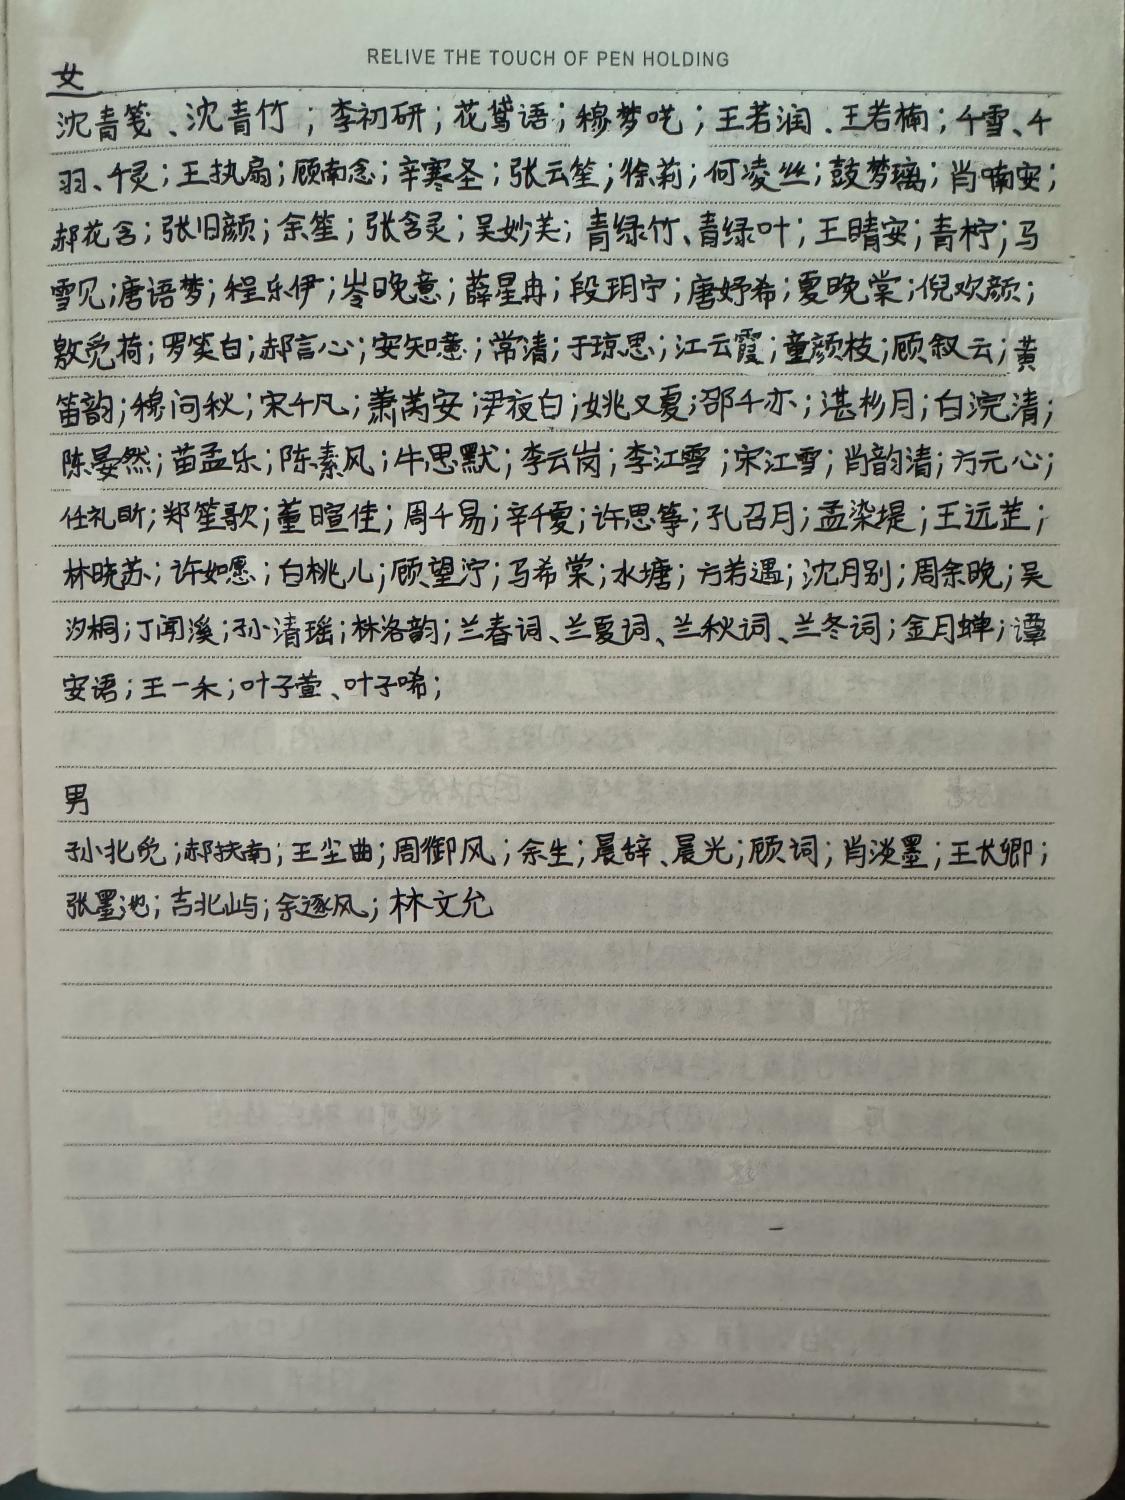 RELIVE THE TOUCH OF PEN HOLDING
女
沈青笺、沈青竹；李初研；花鸢语；穆梦呓；王若润、王若楠；千雪、千
羽、千灵；王执扇；顾南念；辛寒圣；张云笙；徐莉；何凌丝；鼓梦璃；肖喃安；
郝花含；张旧颜；余笙；张含灵；吴妙芙；青绿竹、青绿叶；王晴安；青柠；马
雪见；唐语梦；程乐伊；岑晚意；薛星冉；段玥宁；唐妤希；夏晚棠；倪欢颜；
敫觉荷；罗笑白；郝言心；安知意；常清；于琼思；江云霞；童颜枝；顾叙云；黄
笛韵；穆问秋；宋千凡；萧芮安；尹夜白；姚又夏；邵千亦；湛杉月；白浣清；
陈晏然；苗孟乐；陈素风；牛思默；李云岗；李江雪；宋江雪；肖韵清；方元心；
任礼昕；郑笙歌；董暄佳；周千易；辛千夏；许思筝；孔召月；孟染堤；王远芷；
林晓苏；许如愿；白桃儿；顾望泞；马希棠；水塘；方若遇；沈月别；周余晚；吴
汐桐；丁闻溪；孙清瑶；林洛韵；兰春词、兰夏词、兰秋词、兰冬词；金月蝉；谭
安语；王一禾；叶子萱、叶子唏；
男
孙北晚；郝扶南；王尘曲；周御风；余生；晨辞、晨光；顾词；肖淡墨；王长卿；
张墨池；吉北屿；余逐风；林文允